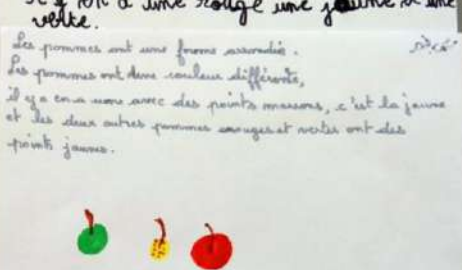 il y en a une rouge une jaune et une
verte.
Les pommes ont une forme arrondie.
Les pommes ont une couleur différente,
il y a en a une avec des points marrons, c'est la jaune
et les deux autres pommes rouges et vertes ont des
points jaunes.